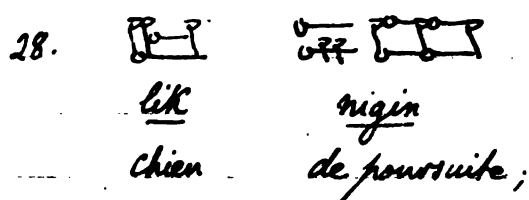 28.
lik nigin
chien de poursuite;